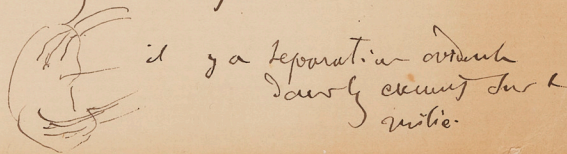 il y a séparation évidente
dans les cheveux sur le
milieu.